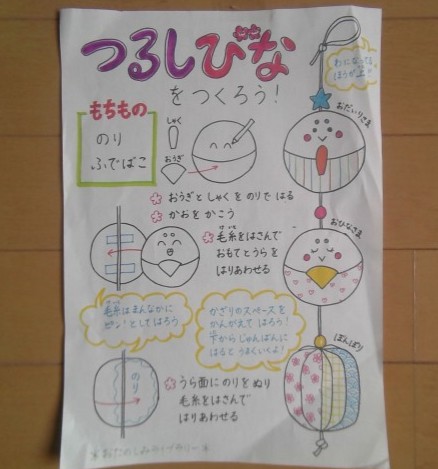 つるしびな
をつくろう!
もちもの
のり
ふでばこ
しゃく
おうぎ
わになってる
ほうが上!!
おだいりさま
* おうぎとしゃくをのりではる
* かおをかこう
* 毛糸をはさんで
おもてとうらを
はりあわせる
けいと
おひなさま
毛糸はまんなかに
ピン!としてはろう
けいと
かざりのスペースを
かんがえてはろう!
下からじゅんばんに
はるとうまくいくよ!
した
ぼんぼり
のり
* うら面にのりをぬり
毛糸をはさんで
はりあわせる
*おたのしみライブラリー*